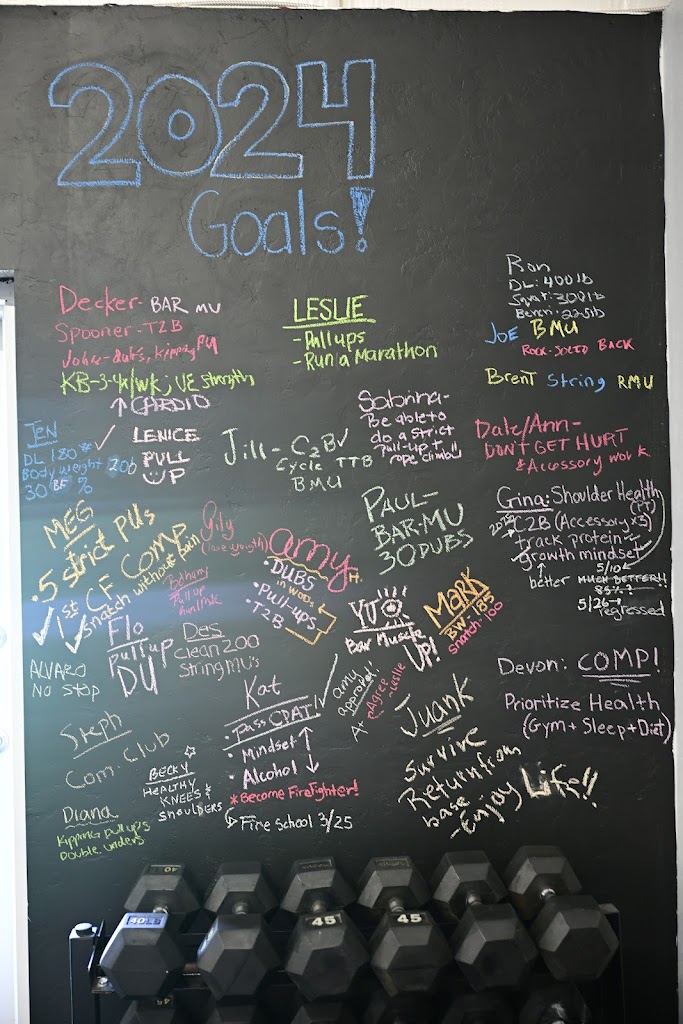 2024
Goals!
Decker- BAR MU
Spooner-T2B
kipping PU
KB-3-4x/wk, VE strength
↑ CARDIO
LESLIE
-Pullups
-Run a Marathon
Ron
DL: 400lb
Squat: 300lb
Bench: 225lb
JOE BMU
ROCK-SOLID BACK
Brent String RMU
JEN
DL 180# ✓
Body weight
30 BF %
LENICE
PULL
UP
Jill- C2B✓
Cycle TTB
BMU
Sabrina-
Be able to
do a strict
Pull-up +
rope climb!!
Dale/Ann-
DON'T GET HURT
& Accessory work
MEG
.5 strict PUs
✓ 1st CF Comp
✓ snatch without pain
Gily
(lose weight)
Bethany
Pull up
amy H.
• DUBS
in WODs
• Pull-ups
• T2B
PAUL-
BAR-MU
30 DUBS
Gina: Shoulder Health
(PT)
C2B (Accessory x3)
track protein
growth mindset
better
5/10
MUCH BETTER!!
85%?
5/26→
regressed
Flo
pull up
DU
Des
Clean 200
String MU's
YU
Bar Muscle
UP!
MARK
BW 185
snatch-160
ALVARO
NO STOP
Kat
• Pass CPAT! ✓
• Mindset ↑
• Alcohol ↓
* Become Firefighter!
Fire school 3/25
amy
approved!
A+
Agree
-Leslie
Devon: COMP!
Prioritize Health
(Gym + Sleep + Diet)
Juank
Survive
Return from
base
-Enjoy Life!!
Steph
Com. Club
BECKY
HEALTHY
KNEES &
SHOULDERS
Diana
Kipping pullups
Double unders
40
45
45